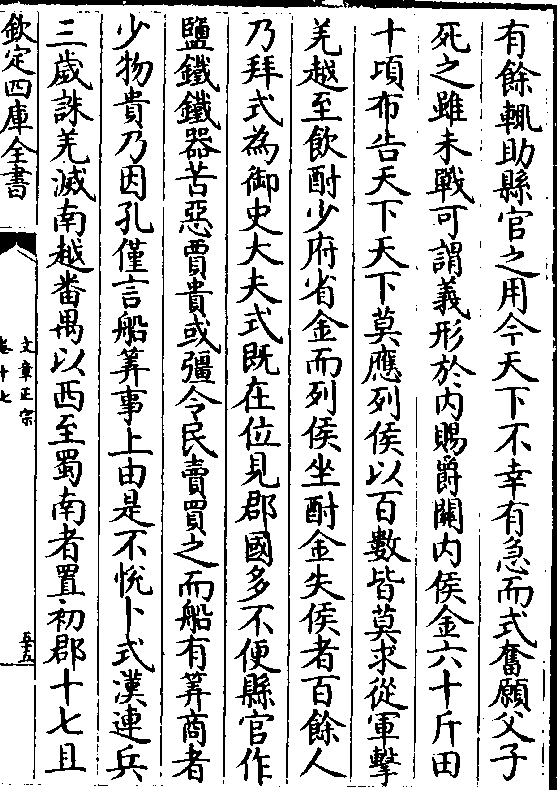 有餘輒助縣官之用今天下不幸有急而式奮願父子
死之雖未戰可謂義形於内賜爵關内侯金六十斤田
十頃布告天下天下莫應列侯以百數皆莫求從軍擊
羌越至飲酎少府省金而列侯坐酎金失侯者百餘人
乃拜式為御史大夫式既在位見郡國多不便縣官作
鹽鐵鐵器苦惡賈貴或彊令民賣買之而船有筭商者
少物貴乃因孔僅言船筭事上由是不悅卜式漢連兵
三歲誅羌滅南越番禺以西至蜀南者置初郡十七且
欽定四庫全書
文章正宗
卷十七
五十五